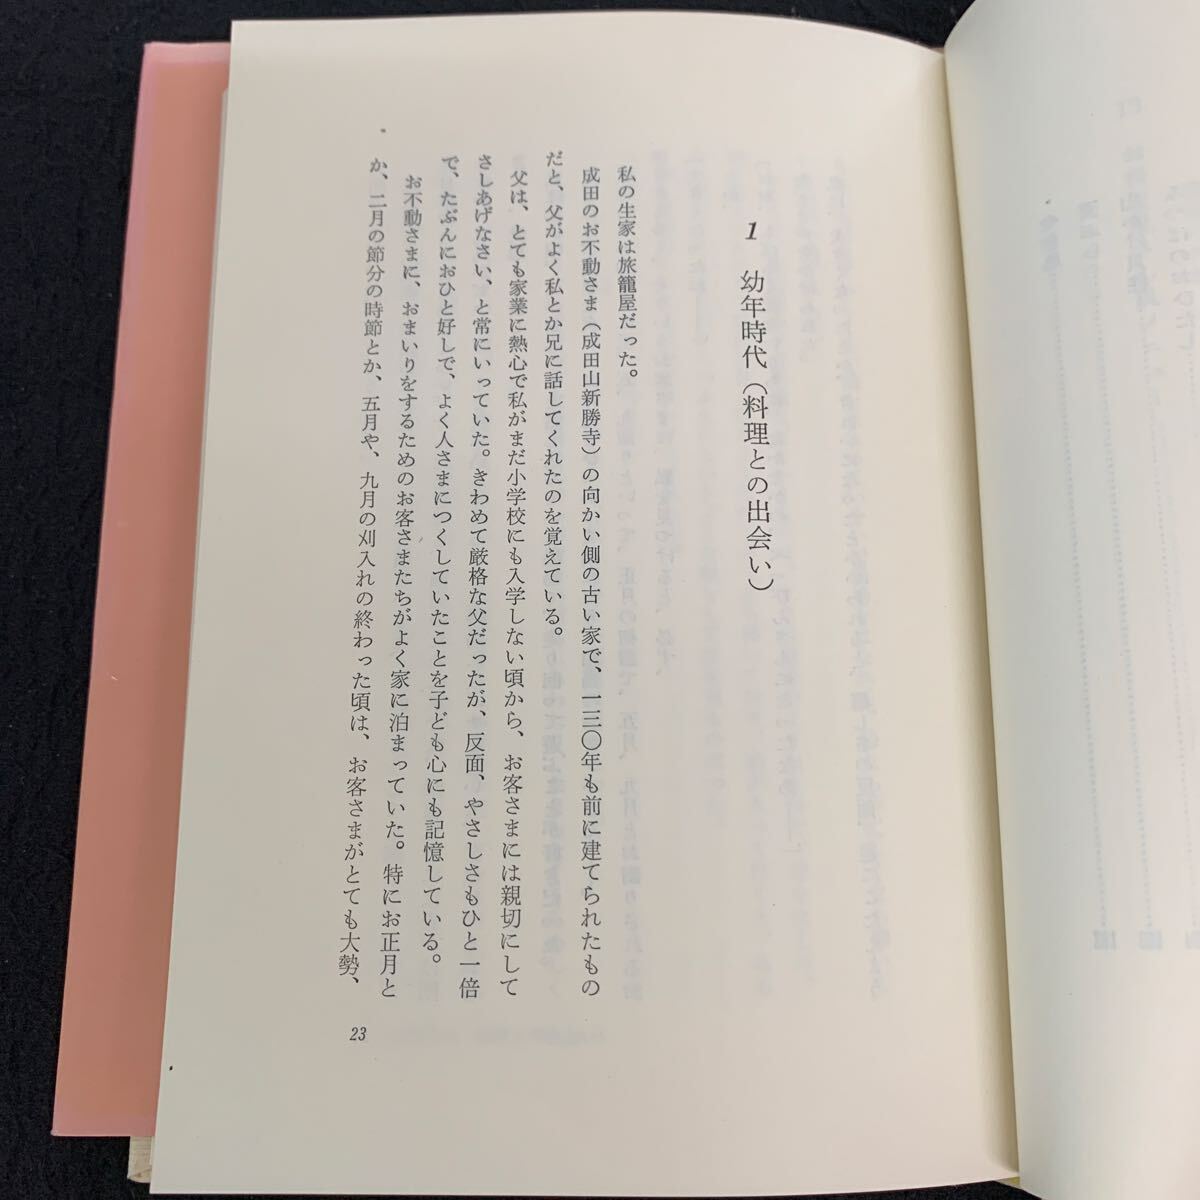 1 幼年時代（料理との出会い）
私の生家は旅籠屋だった。
成田のお不動さま（成田山新勝寺）の向かい側の古い家で、一三〇年も前に建てられたもの
だと、父がよく私とか兄に話してくれたのを覚えている。
父は、とても家業に熱心で私がまだ小学校にも入学しない頃から、お客さまには親切にして
さしあげなさい、と常にいっていた。きわめて厳格な父だったが、反面、やさしさもひと一倍
で、たぶんにおひと好しで、よく人さまにつくしていたことを子ども心にも記憶している。
お不動さまに、おまいりをするためのお客さまたちがよく家に泊まっていた。特にお正月と
か、二月の節分の時節とか、五月や、九月の刈入れの終わった頃は、お客さまがとても大勢、
23